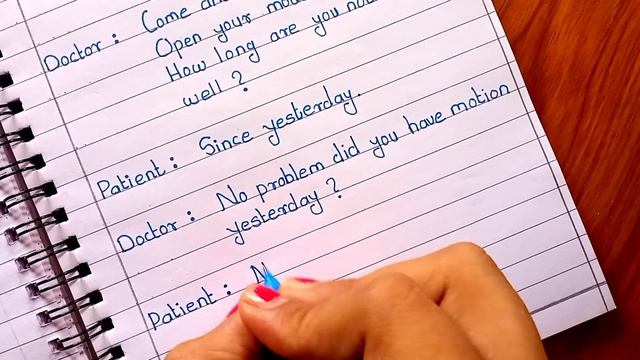 Doctor : Come
Open your
How long are you
well ?
Patient : Since yesterday.
Doctor : No problem did you have motion
yesterday ?
Patient : N